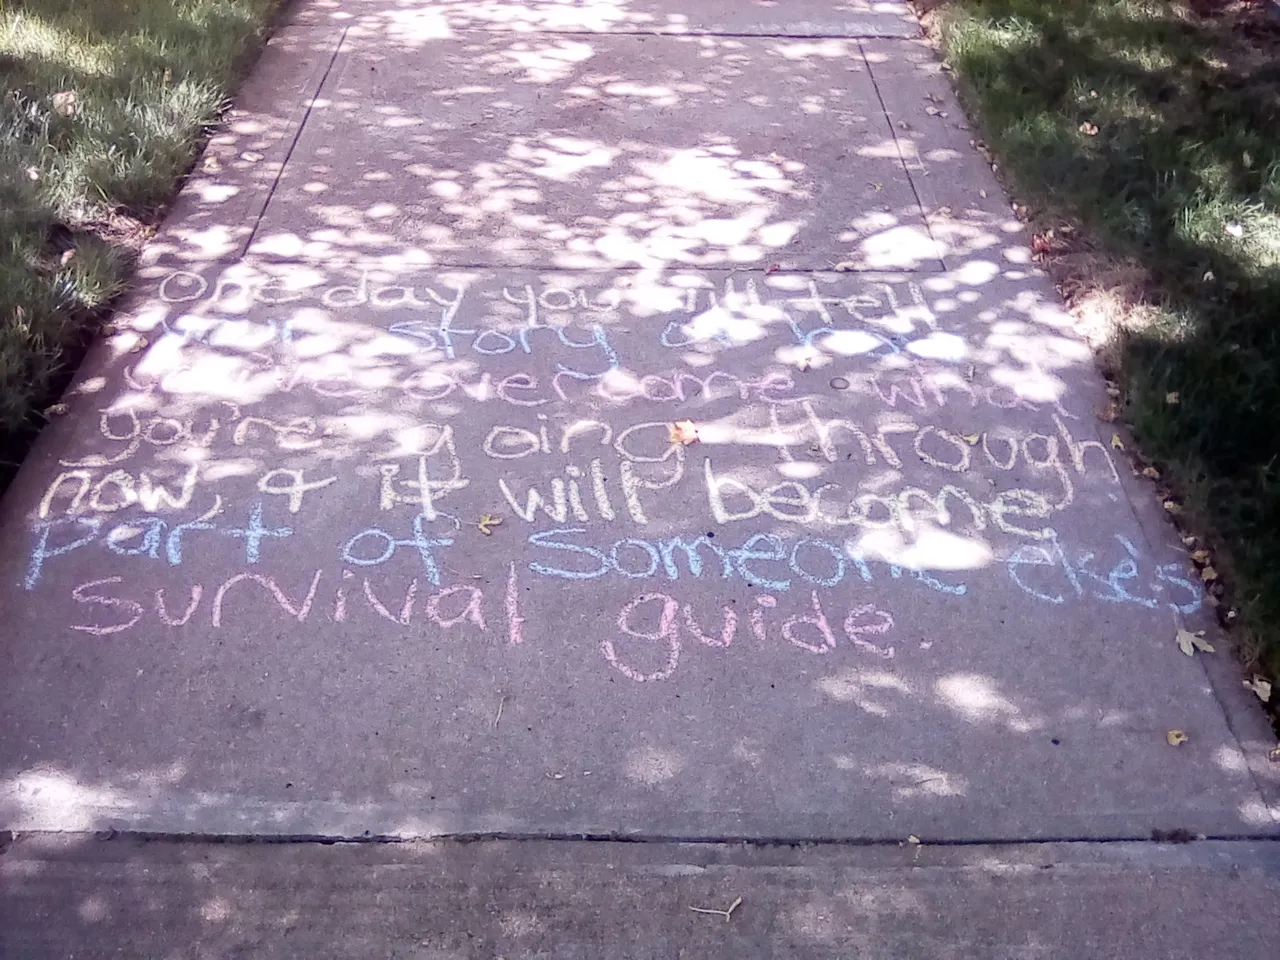 One day you will tell
your story of how
you've overcome what
you're going through
now, & it will become
part of someone else's
survival guide.